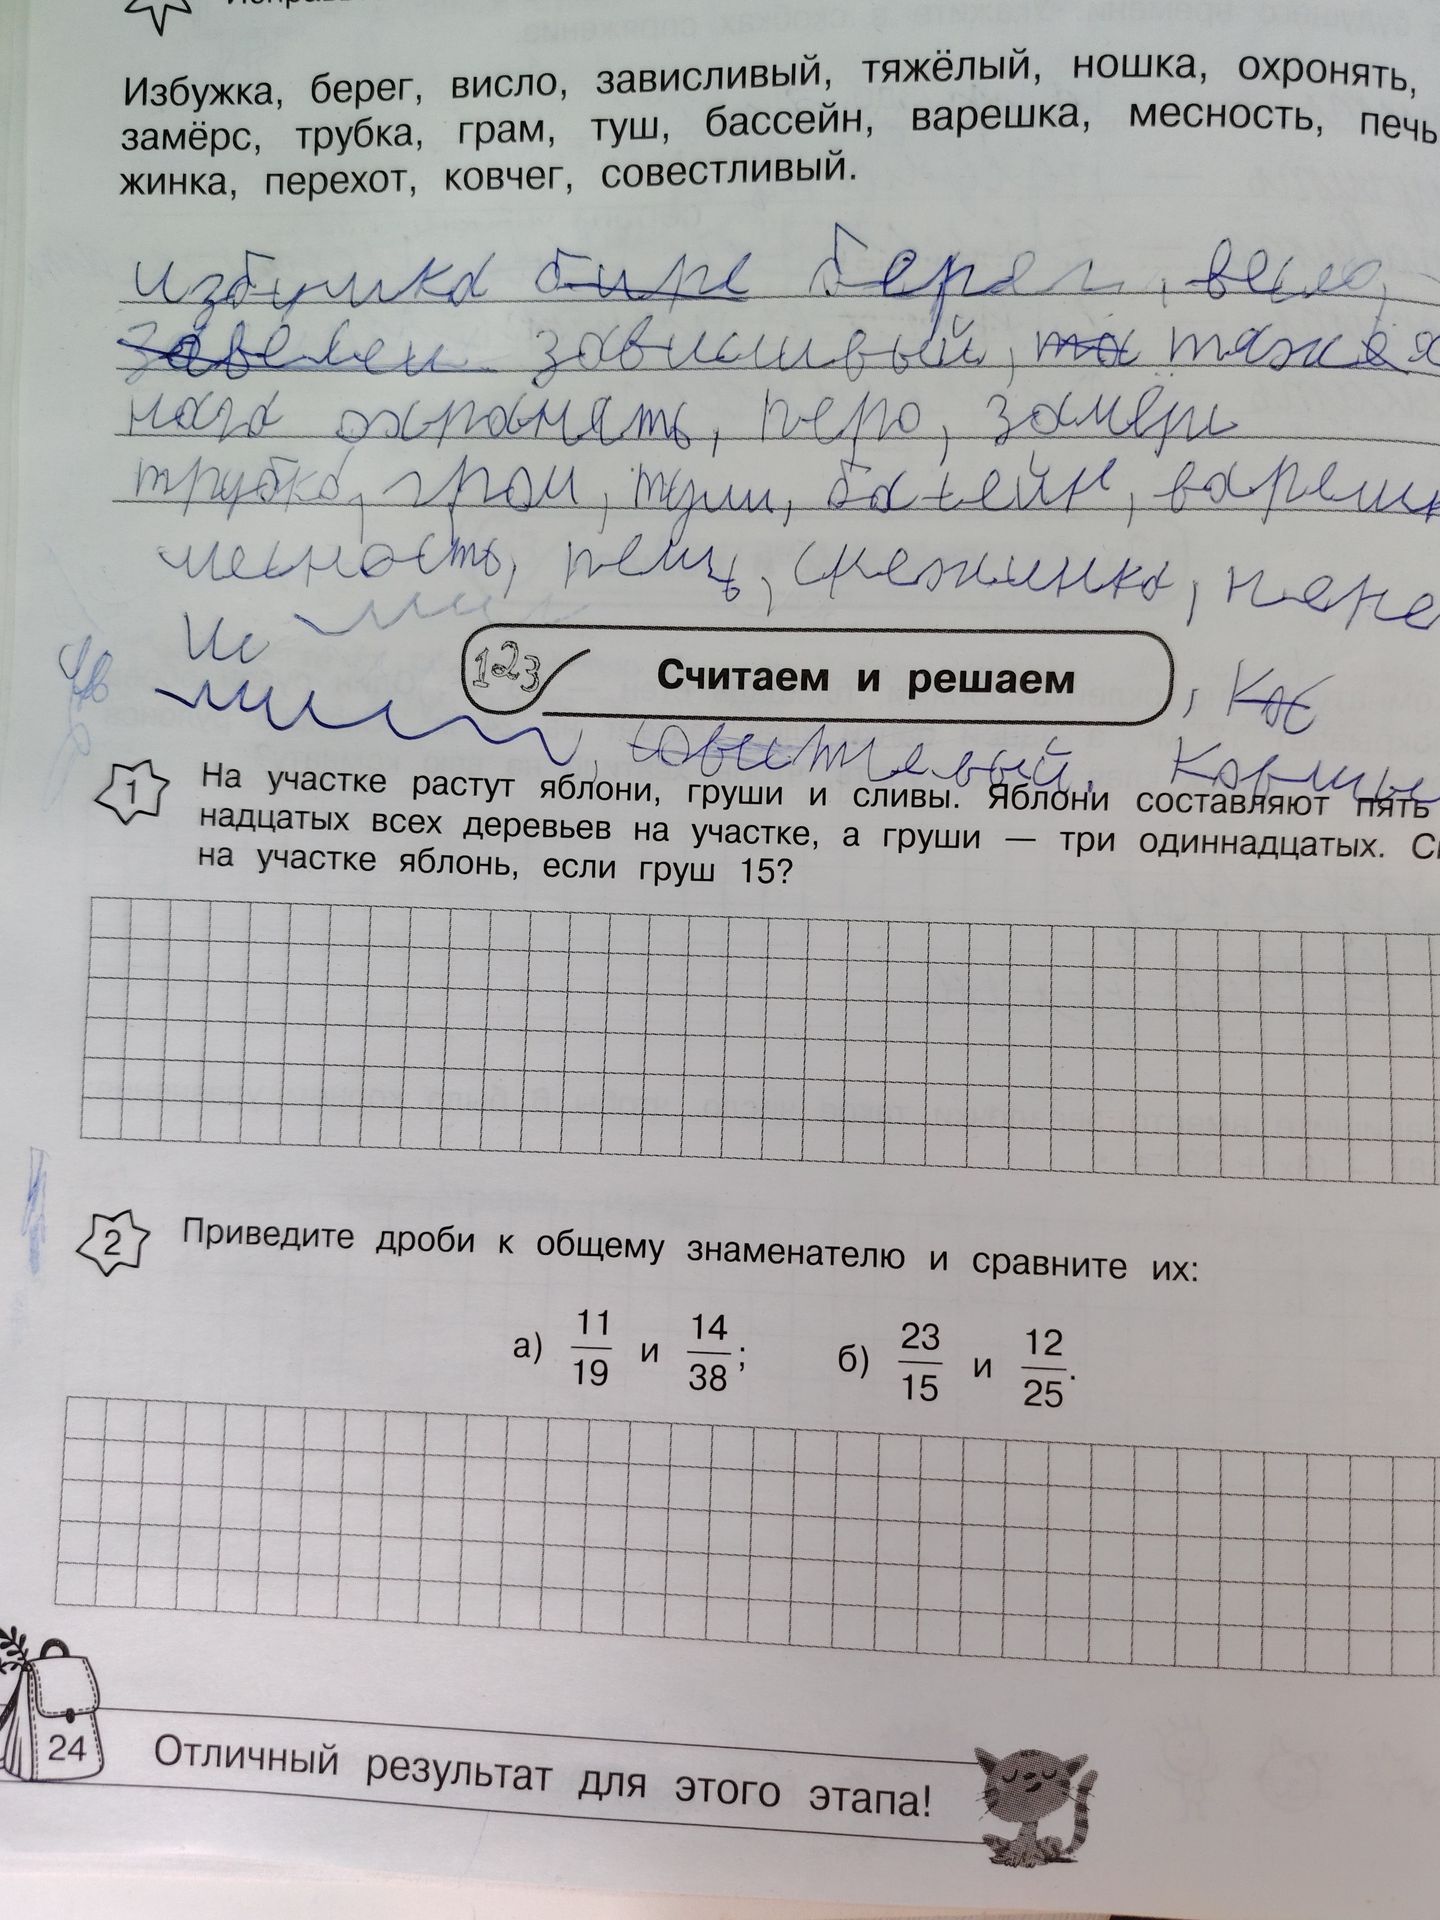 Избужка, берег, висло, зависливый, тяжёлый, ношка, охронять,
замёрс, трубка, грам, туш, бассейн, варешка, месность, печь
жинка, перехот, ковчег, совестливый.
избушка бире берег, весло,
зависливый, та
нага охранять, перо, замёрс
трубка, грам, туш, басейн, вареш
месность, печь, снежинка, пере
123 Считаем и решаем
1 На участке растут яблони, груши и сливы. Яблони составляют пять
надцатых всех деревьев на участке, а груши — три одиннадцатых. С
на участке яблонь, если груш 15?
2 Приведите дроби к общему знаменателю и сравните их:
а) 11/19 и 14/38; б) 23/15 и 12/25.
24 Отличный результат для этого этапа!